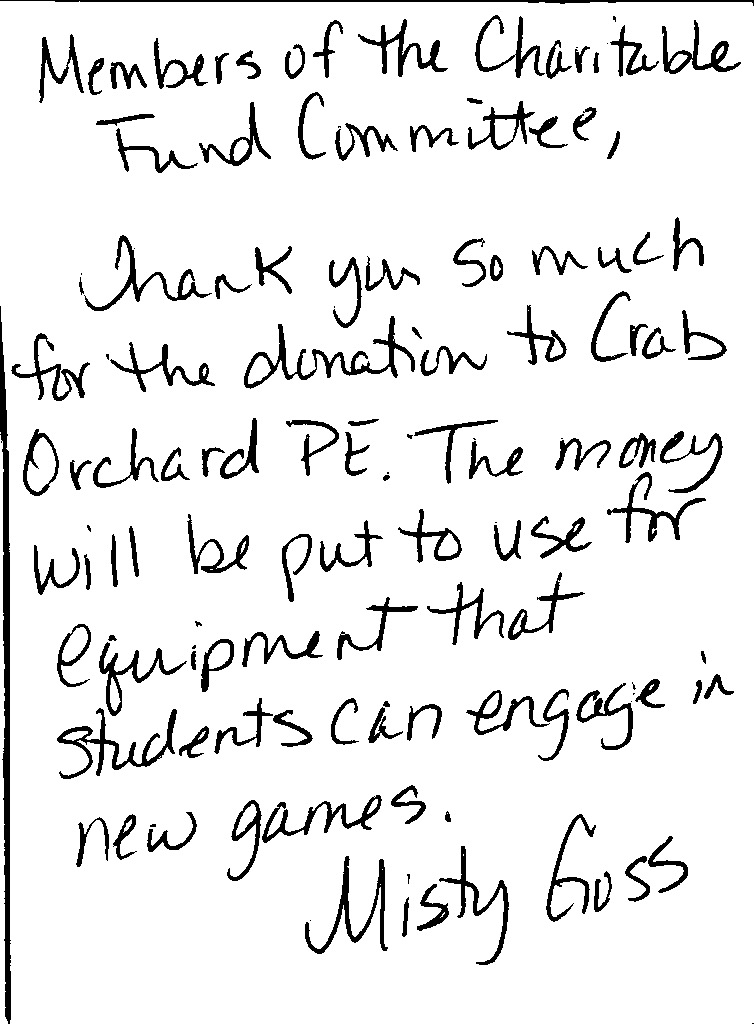 Members of the Charitable
Fund Committee,
Thank you so much
for the donation to Crab
Orchard PE. The money
will be put to use for
equipment that
students can engage in
new games.
Misty Goss